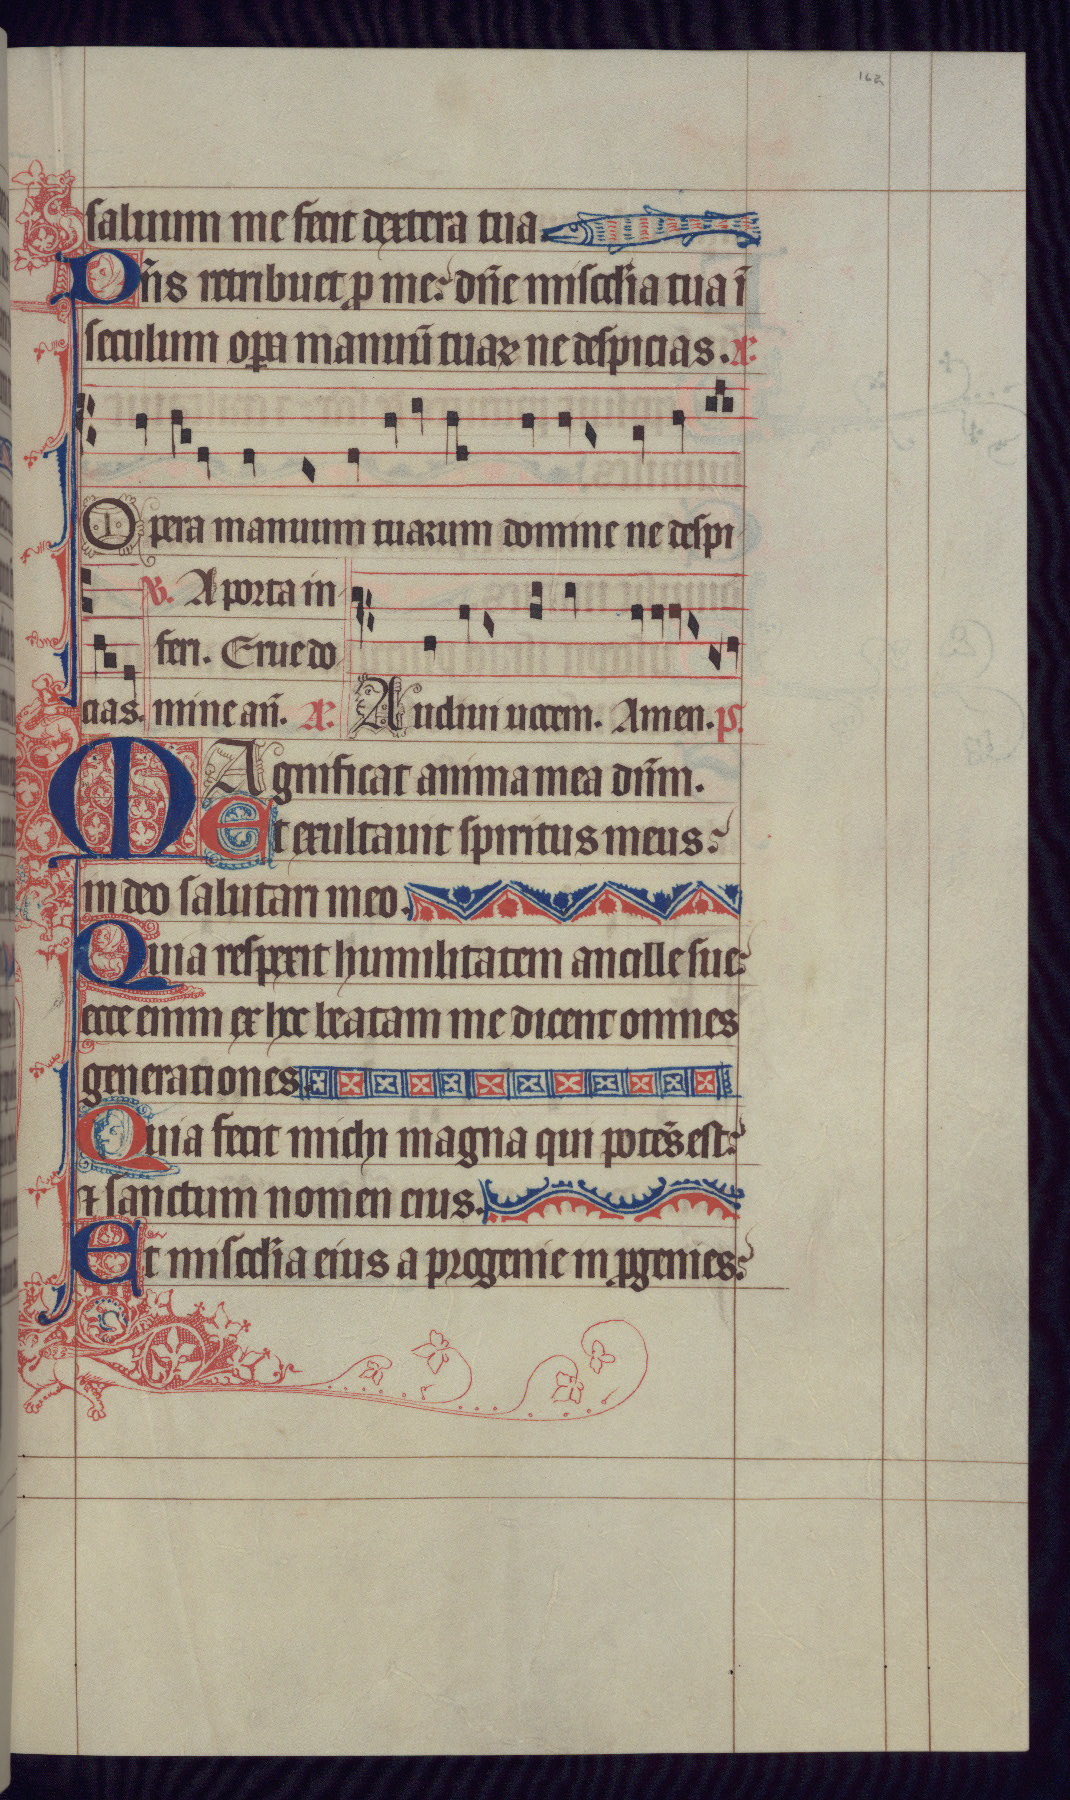 162
saluum me fecit dextera tua.
Dñs retribuet ꝑ me: dñe misc̄dia tua ī
seculum oꝑa manuū tuaꝝ ne despicias. A͞.
Opera manuum tuarum domine ne despi
V. A porta in
feri. Erue do
cias. mine añ. A͞. Audiui uocem. Amen. ps.
MAgnificat anima mea dñm.
Et exultauit spiritus meus:
in deo salutari meo.
Quia respexit humilitatem ancille sue:
ecce enim ex hoc beatam me dicent omnes
generationes.
Quia fecit michi magna qui potēs est:
⁊ sanctum nomen eius.
Et misc̄dia eius a progenie in ꝓgenies: